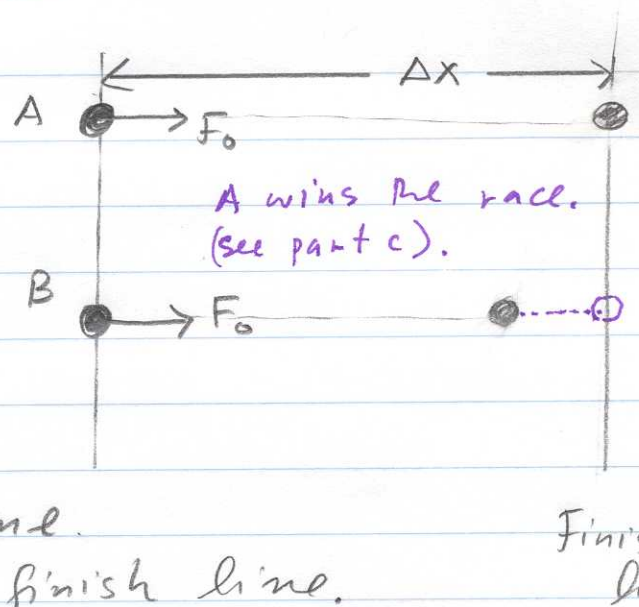 ΔX
A
F₀
A wins the race.
(see part c).
B
F₀
finish line.